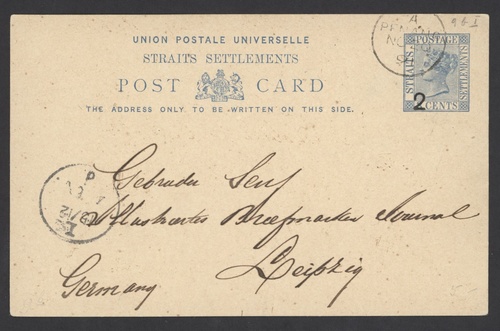 UNION POSTALE UNIVERSELLE
STRAITS SETTLEMENTS
POST CARD
THE ADDRESS ONLY TO BE WRITTEN ON THIS SIDE.
STRAITS POSTAGE SETTLEMENTS
2 CENTS
A
NO
Gebrüder Senf
Illustrirtes Briefmarken Journal
Leipzig
Germany